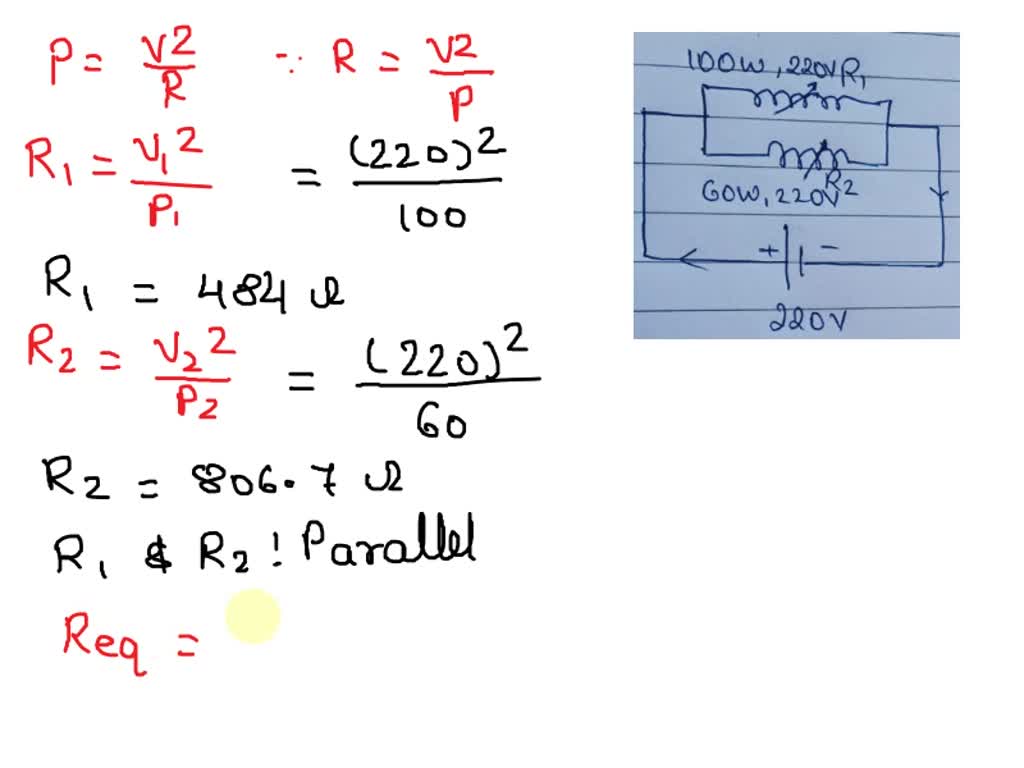 P = V2/R ∵ R = V2/P
R1 = V1²/P1 = (220)²/100
R1 = 484 Ω
R2 = V2²/P2 = (220)²/60
R2 = 806.7 Ω
R1 & R2 : Parallel
Req =
100W, 220V R1
R2
60W, 220V
+ -
220V